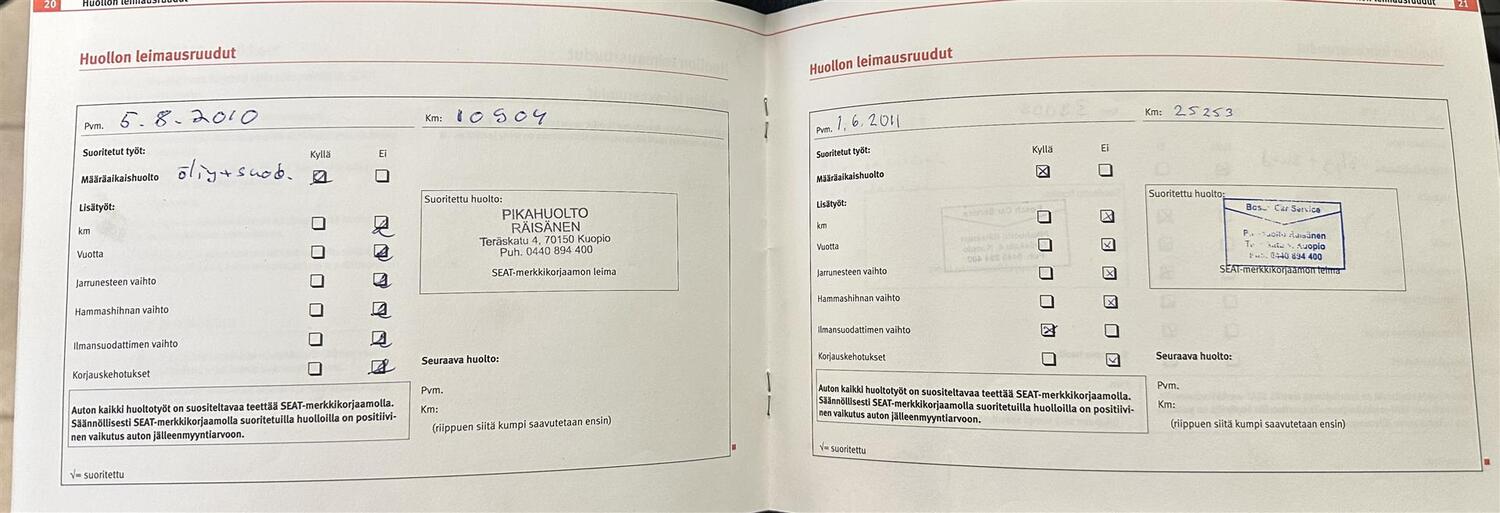 20 Huollon leimausruudut
Huollon leimausruudut
Pvm. 5.8.2010 Km: 10904
Suoritetut työt: Kyllä Ei
Määräaikaishuolto öljy+suod.
Lisätyöt:
km
Vuotta
Jarrunesteen vaihto
Hammashihnan vaihto
Ilmansuodattimen vaihto
Korjauskehotukset
Suoritettu huolto:
PIKAHUOLTO
RÄISÄNEN
Teräskatu 4, 70150 Kuopio
Puh. 0440 894 400
SEAT-merkkikorjaamon leima
Seuraava huolto:
Pvm.
Km:
(riippuen siitä kumpi saavutetaan ensin)
Auton kaikki huoltotyöt on suositeltavaa teettää SEAT-merkkikorjaamolla.
Säännöllisesti SEAT-merkkikorjaamolla suoritetuilla huolloilla on positiivi-
nen vaikutus auton jälleenmyyntiarvoon.
√= suoritettu
leimausruudut 21
Huollon leimausruudut
Pvm. 1.6.2011 Km: 25253
Suoritetut työt: Kyllä Ei
Määräaikaishuolto
Lisätyöt:
km
Vuotta
Jarrunesteen vaihto
Hammashihnan vaihto
Ilmansuodattimen vaihto
Korjauskehotukset
Suoritettu huolto:
Car Service
Räisänen
Kuopio
Puh. 0440 894 400
SEAT-merkkikorjaamon leima
Seuraava huolto:
Pvm.
Km:
(riippuen siitä kumpi saavutetaan ensin)
Auton kaikki huoltotyöt on suositeltavaa teettää SEAT-merkkikorjaamolla.
Säännöllisesti SEAT-merkkikorjaamolla suoritetuilla huolloilla on positiivi-
nen vaikutus auton jälleenmyyntiarvoon.
√= suoritettu